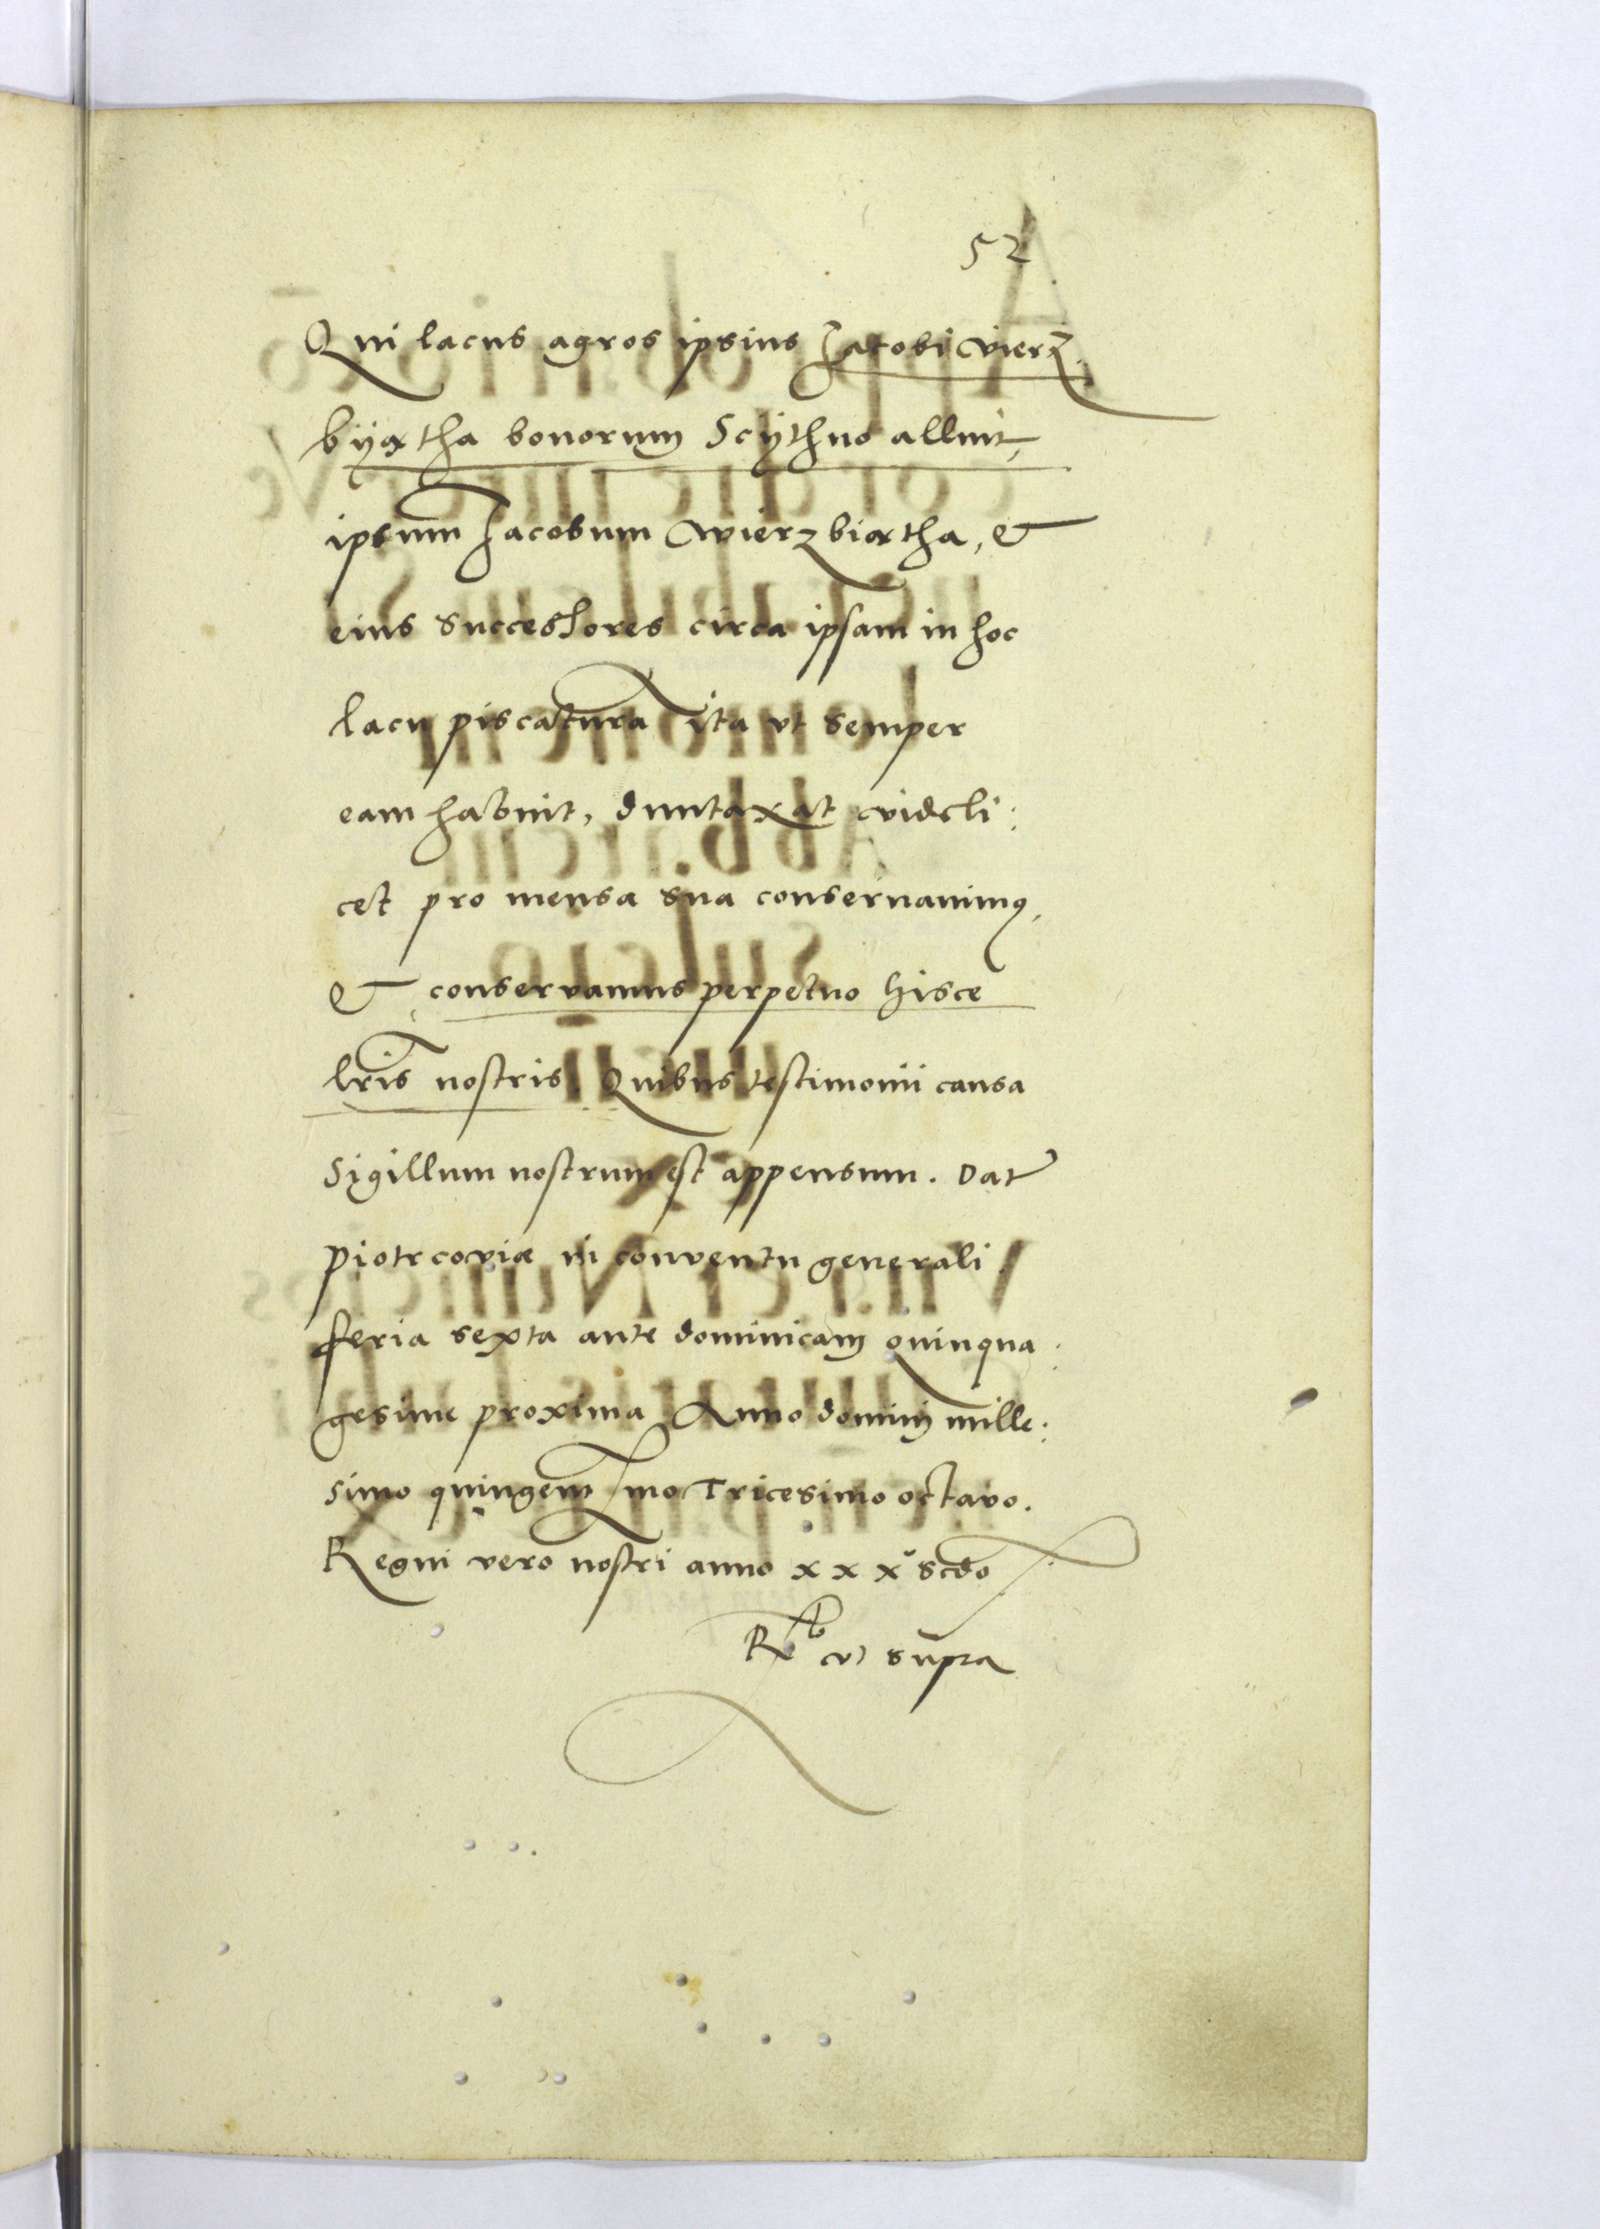 52
Qui lacus agros ipsius Jacobi Wierz
byatha bonorum Scythno alluit,
ipsum Jacobum Wierzbiatha, &
eius successores circa ipsam in hoc
lacu piscatura ita vt semper
eam habuit, duntaxat videli:
cet pro mensa sua conservavimus,
& conservamus perpetuo hisce
lris nostris. Quibus testimonii causa
Sigillum nostrum est appensum. Dat
Piotrcoviæ in conventu generali
feria sexta ante dominicam quinqua:
gesime proxima Anno domini mille:
simo quingen mo Tricesimo octavo.
Regni vero nostri anno xxx scdo
supra